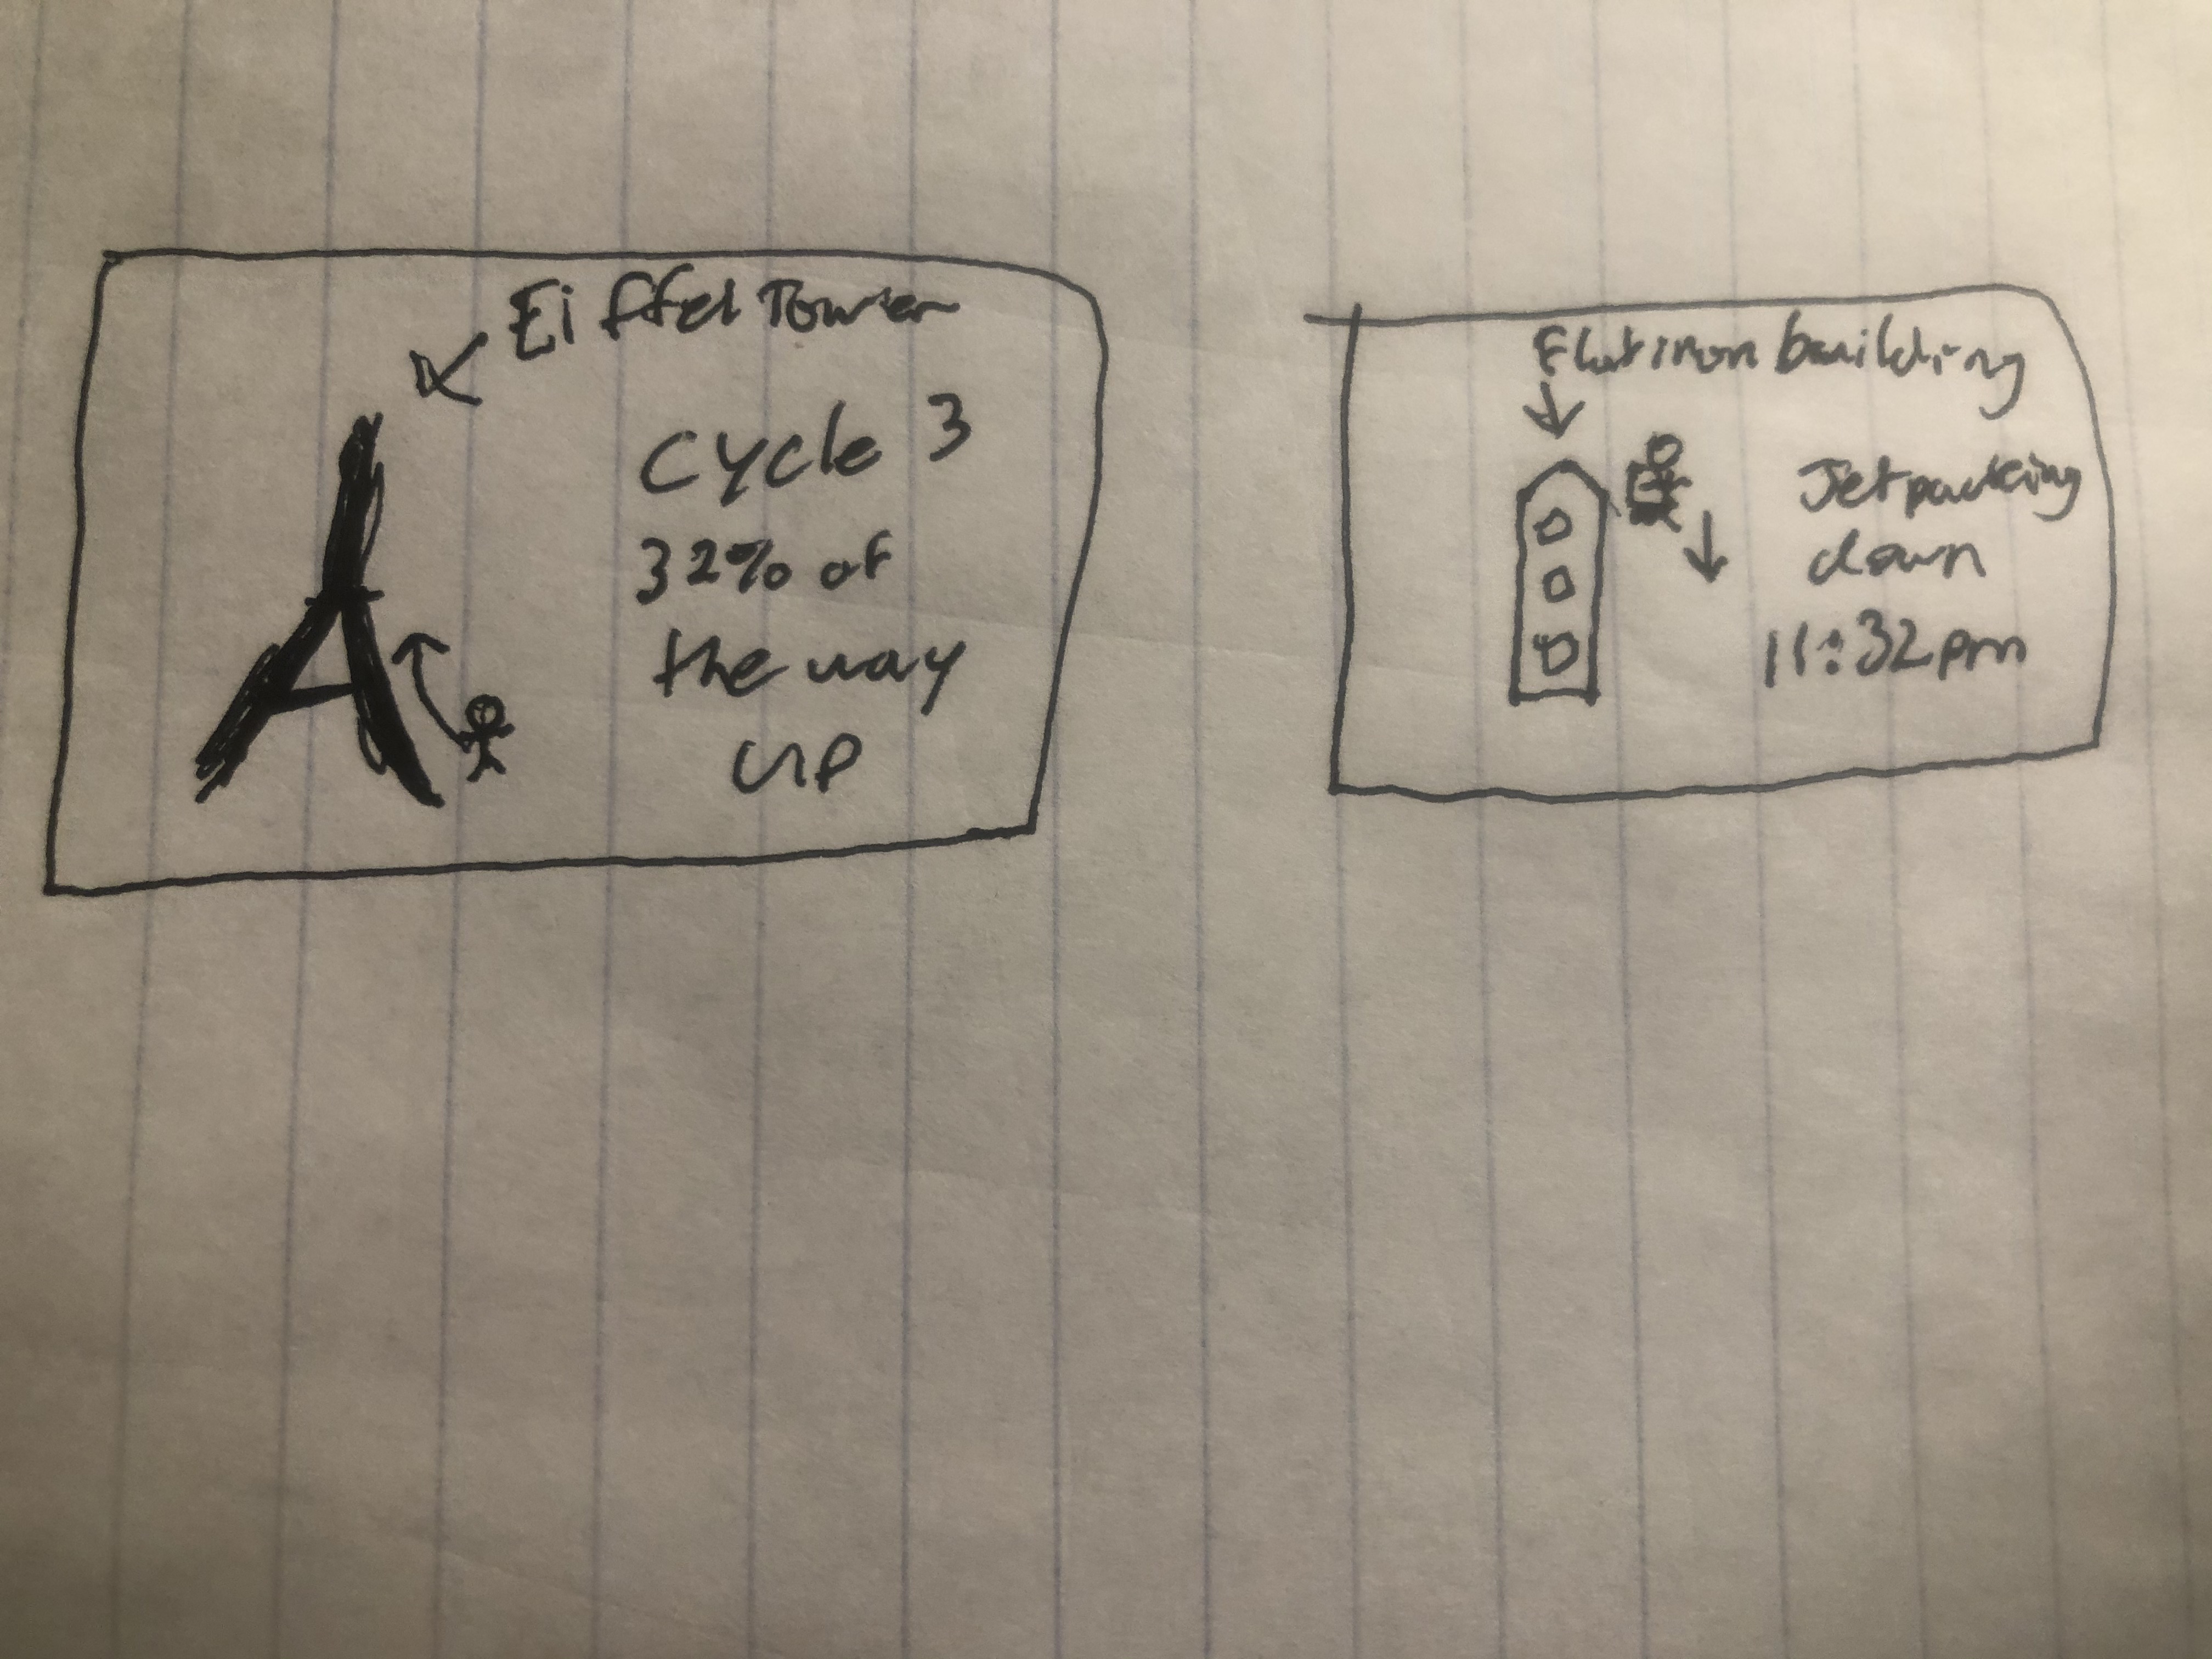 Eiffel Tower
Cycle 3
32% of
the way
up
Flatiron building
Jetpacking
down
11:32pm